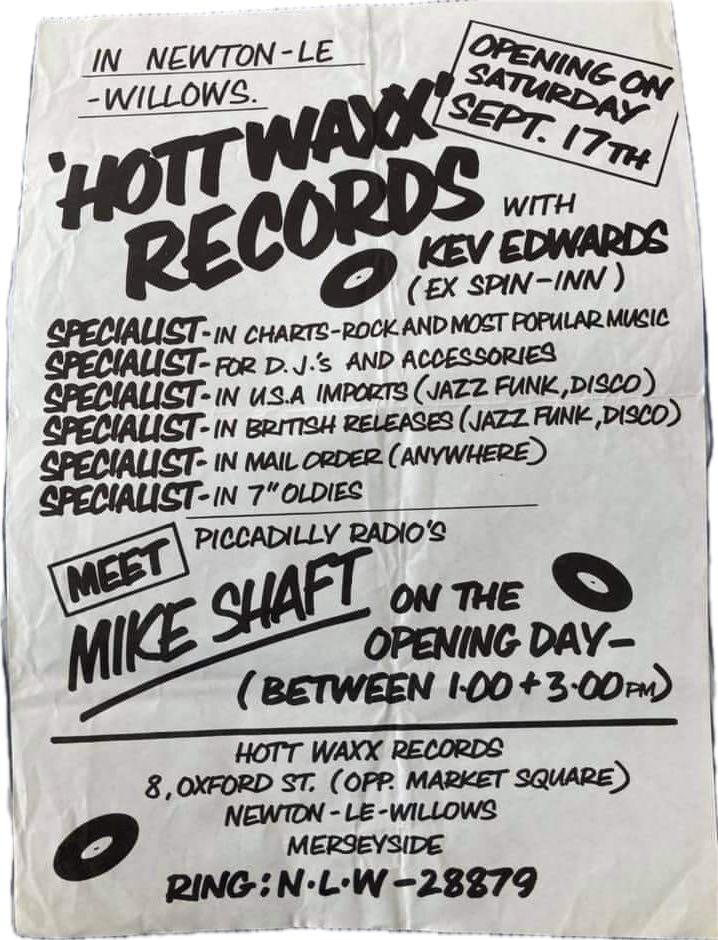 IN NEWTON-LE
-WILLOWS.
OPENING ON
SATURDAY
SEPT. 17TH
'HOTT WAXX'
RECORDS
WITH
KEV EDWARDS
(EX SPIN-INN)
SPECIALIST-IN CHARTS-ROCK AND MOST POPULAR MUSIC
SPECIALIST-FOR D.J.'s AND ACCESSORIES
SPECIALIST-IN U.S.A IMPORTS (JAZZ FUNK, DISCO)
SPECIALIST-IN BRITISH RELEASES (JAZZ FUNK, DISCO)
SPECIALIST-IN MAIL ORDER (ANYWHERE)
SPECIALIST-IN 7" OLDIES
MEET PICCADILLY RADIO'S
MIKE SHAFT ON THE
OPENING DAY-
(BETWEEN 1·00 + 3·00 PM)
HOTT WAXX RECORDS
8, OXFORD ST. (OPP. MARKET SQUARE)
NEWTON-LE-WILLOWS
MERSEYSIDE
RING: N·L·W-28879